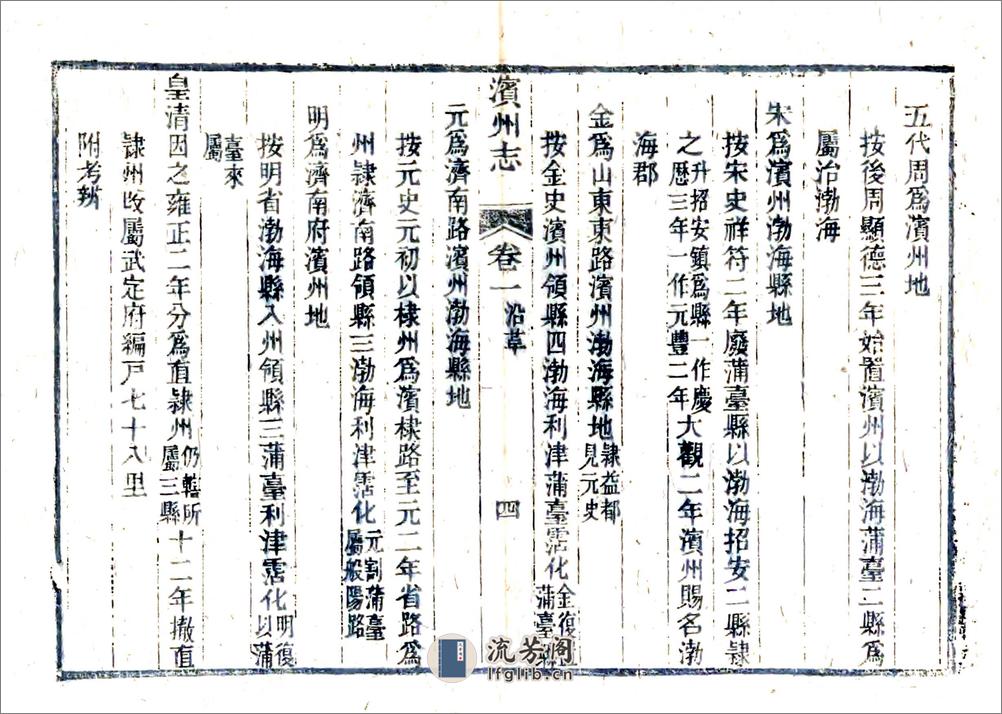 五代周爲濱州地
按後周顯德三年始置濱州以渤海蒲臺二縣爲
屬治渤海
宋爲濱州渤海縣地
按宋史祥符二年廢蒲臺縣以渤海招安二縣隸
之升招安鎮爲縣一作慶
歷三年一作元豐二年大觀二年濱州賜名渤
海郡
金爲山東東路濱州渤海縣地隸益都
見元史
按金史濱州領縣四渤海利津蒲臺霑化金復
蒲臺縣
濱州志
卷一
沿革
四
元爲濟南路濱州渤海縣地
按元史元初以棣州爲濱棣路至元二年省路爲
州隸濟南路領縣三渤海利津霑化元割蒲臺
屬般陽路
明爲濟南府濱州地
按明省渤海縣入州領縣三蒲臺利津霑化明復
以蒲
臺來
屬
皇清因之雍正二年分爲直隸州仍轄所
屬三縣十二年撤直
隸州改屬武定府編戸七十八里
附考辨
流芳阁
lfglib.cn